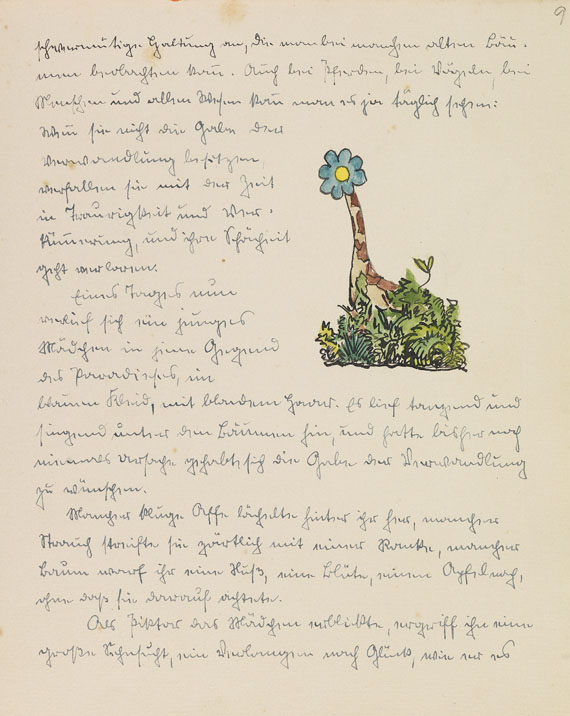 9
schwermütige Haltung an, die man bei manchen alten Bäu-
men beobachten kann. Auch bei Pferden, bei Vögeln, bei
Menschen und allen Wesen kann man es ja täglich sehen:
Wenn sie nicht die Gabe der
Verwandlung besitzen,
verfallen sie mit der Zeit
in Traurigkeit und Ver-
kümmerung, und ihre Schönheit
geht verloren.
Eines Tages nun
verlief sich ein junges
Mädchen in jene Gegend
des Paradieses, im
blauen Kleid, mit blondem Haar. Es lief tanzend und
singend unter den Bäumen hin, und hatte bisher noch
niemals Ursache gehabt sich die Gabe der Verwandlung
zu wünschen.
Mancher kluge Affe lächelte hinter ihr her, mancher
Strauch streifte sie zärtlich mit einer Ranke, mancher
Baum warf ihr eine Nuß, eine Blüte, einen Apfel nach,
ohne daß sie darauf achtete.
Als Piktor das Mädchen erblickte, ergriff ihn eine
große Sehnsucht, ein Verlangen nach Glück, wie er es